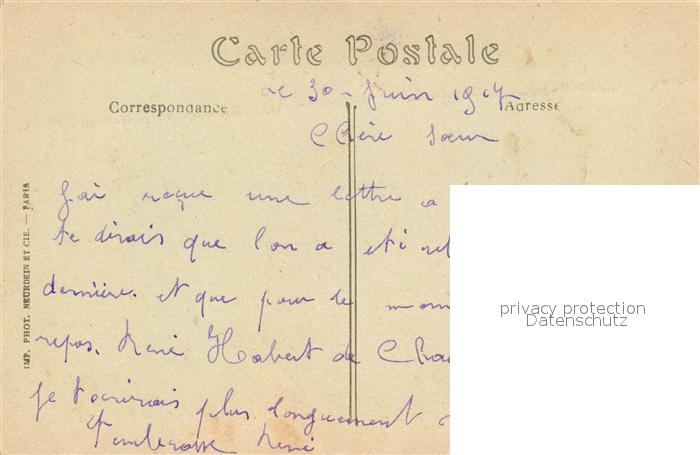 Carte Postale
Le 30 - Juin 1917
Correspondance
Adresse
Chère sœur
J'ai reçue une lettre a
te dirais que l'on a eti rel
dernière. et que pour le mom
repos. René Habert de Cha
je t'ecrirais plus longuement
T'embrasse René
IMP. PHOT. NEURDEIN ET CIE. — PARIS
privacy protection
Datenschutz